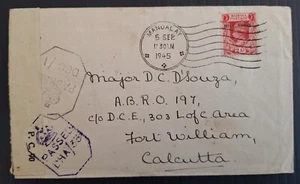 MANDALAY
5 SEP
1945
Major D.C. D'Souza,
A.B.R.O. 197,
c/o D.C.E., 303 L of C Area
Fort William,
Calcutta
PASSED
P.C.